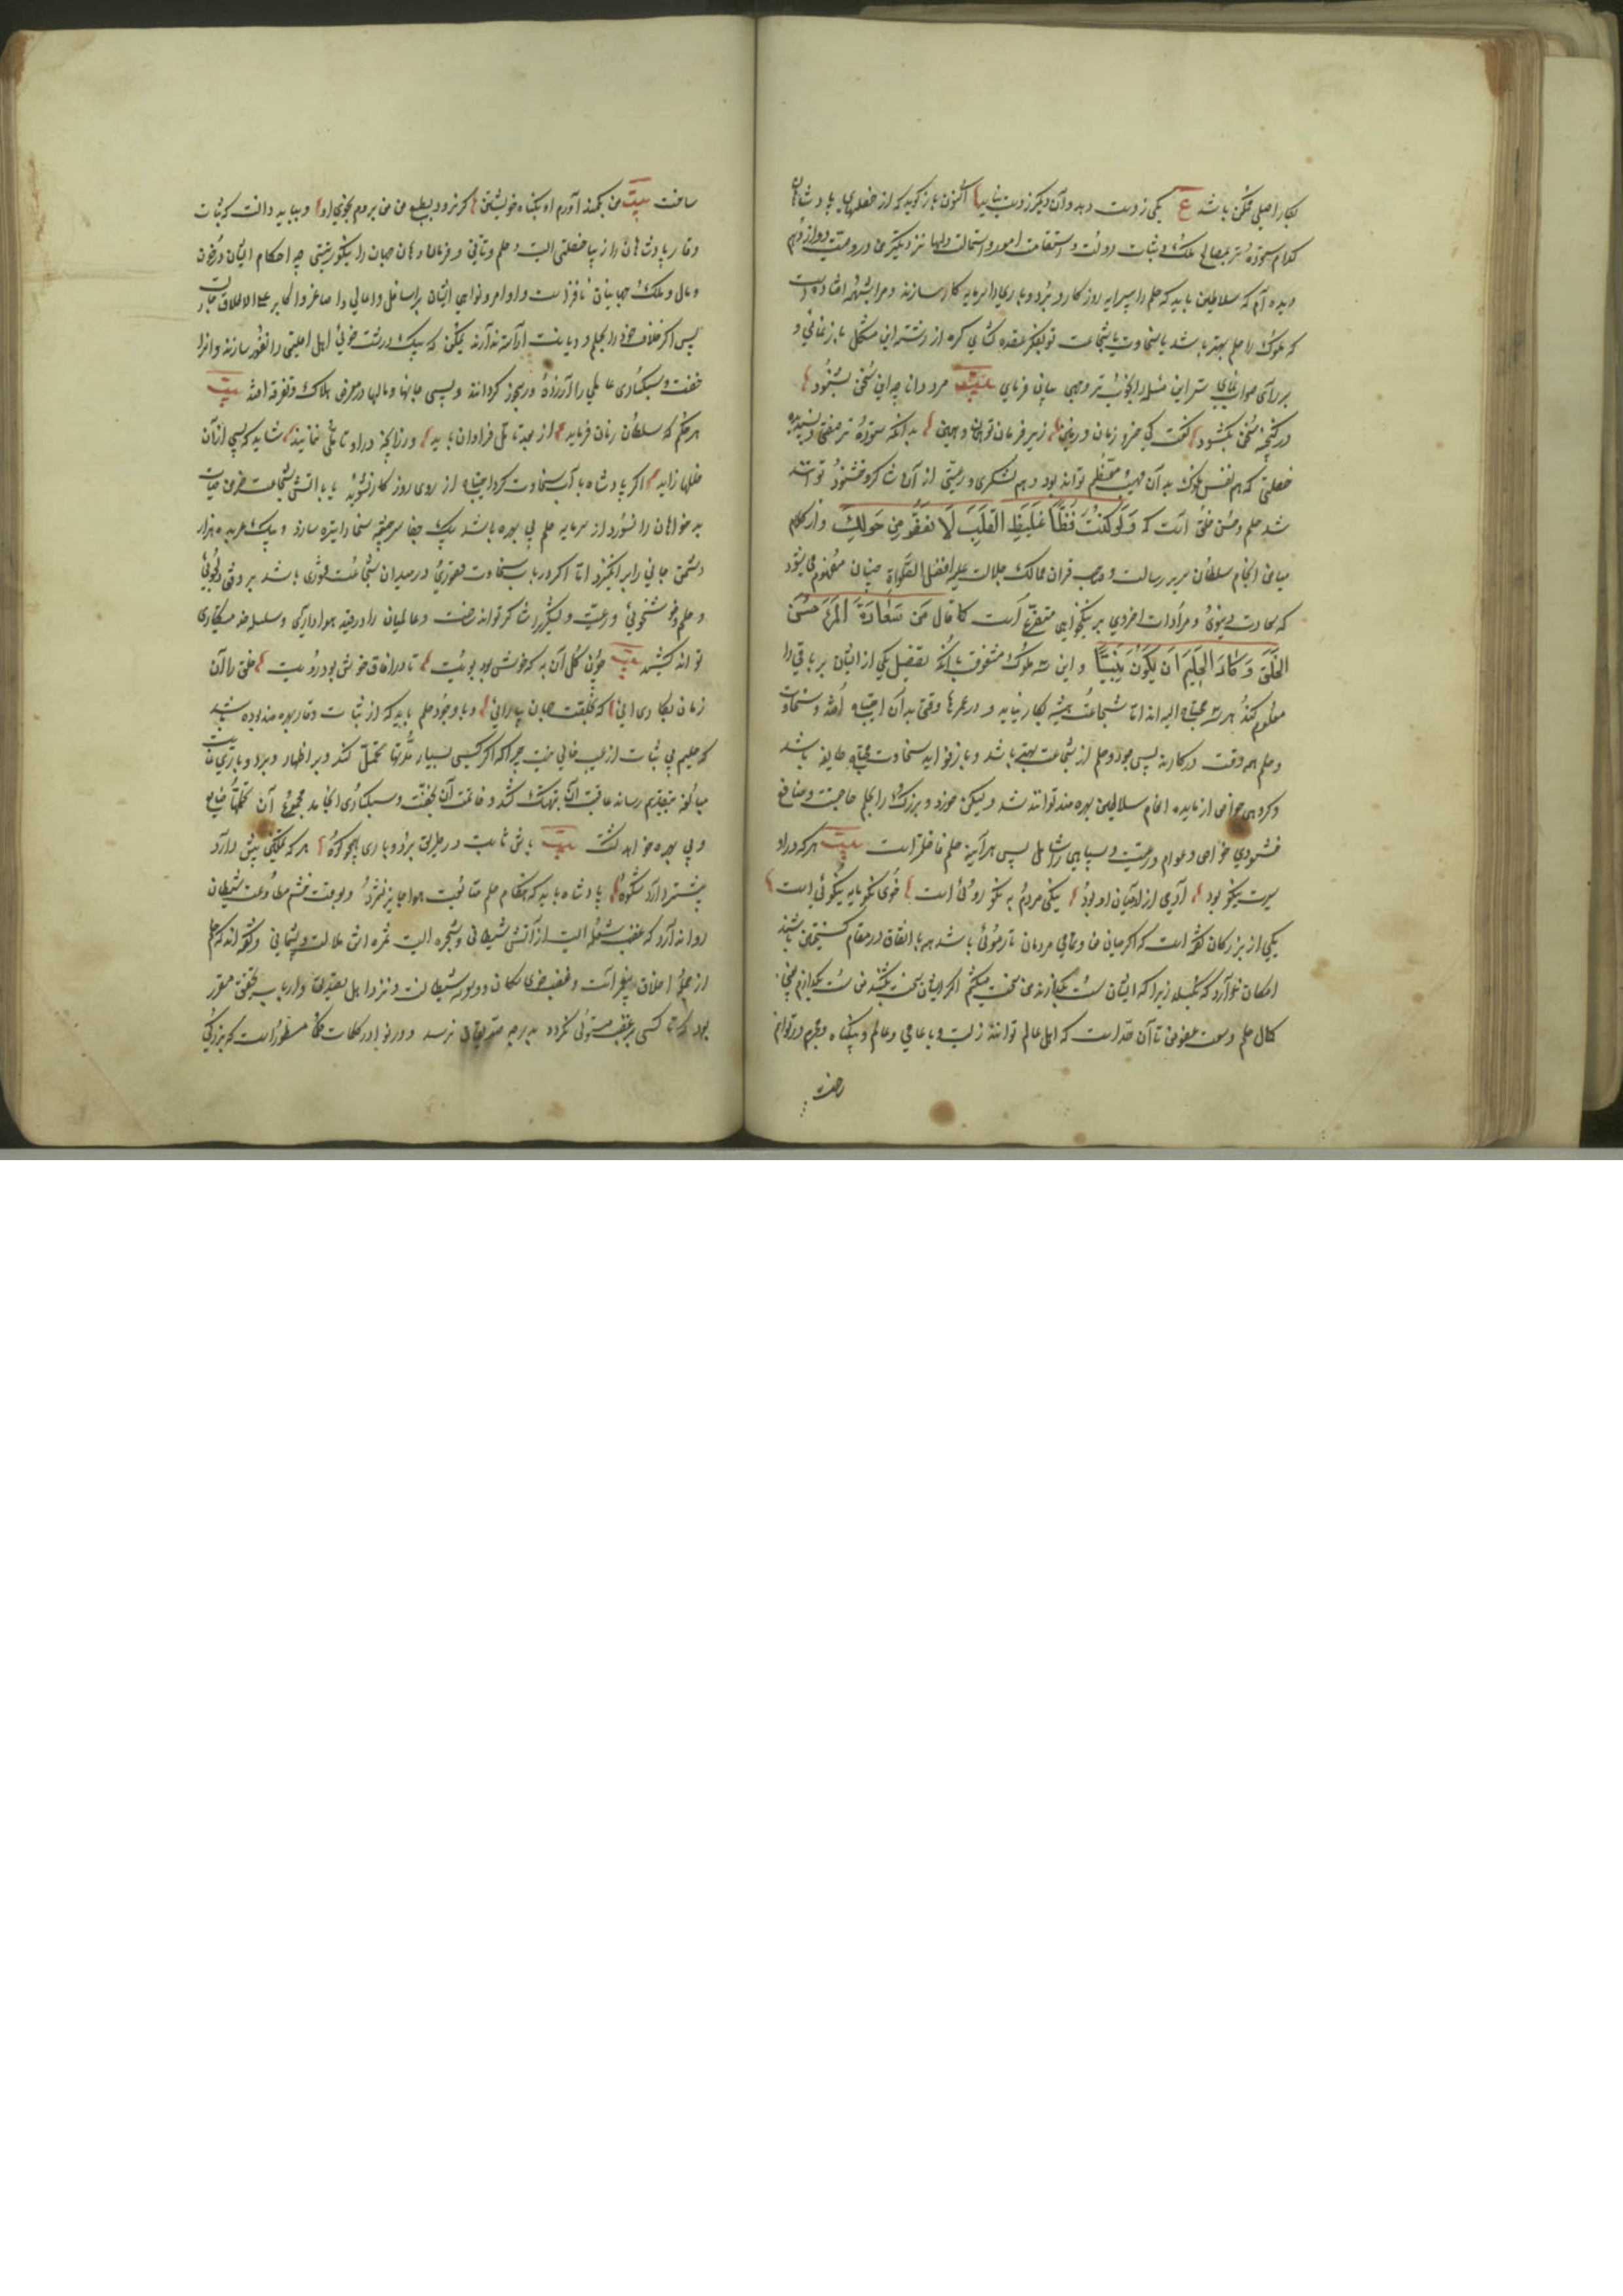 بکار اصلی ممکن باشد ع یکی زدست دهد وان دیکر زدست نیاید اکنون بازکوید که از خصلتهای پادشاهان
کدام ستوده‌تر بمصالح ملک و ثبات دولت و استقامت امور و استمالت دلها نزدیکترین و در وصیت دوازدهم
دیده‌ام که سلاطین باید که حلم را پیرایه روزکار و بردباری را سرمایه کار سازند و مرا شبهه افتاده است
که ملوک را حلم بهتر باشد یا سخاوت یا شجاعت تو بفکر عقده کشای کره از رشته این مشکل بازنمای و
بر رای صواب نمای سر این مسئله را بخوبتر وجهی بیان فرمای بیت مرد دانا چو این سخن بشنود
در کنجینه سخن بکشود کفت کی خسرو زمان و زمین زیر فرمان تو همان و همین بدانکه ستوده‌تر صفتی و پسندیده
خصلتی که هم نفس ملوک بدان مهیب و معظم تواند بود و هم لشکری و رعیتی از آن شاکر و خشنود توانند
شد حلم و حسن خلق است که وَلَوْ كُنْتَ فَظًّا غَلِيظَ الْقَلْبِ لَانْفَضُّوا مِنْ حَوْلِكَ و از کلام
میامن انجام سلطان سریر رسالت و صاحب قران ممالک جلالت علیه افضل الصلواة چنان مفهوم میشود
که سعادت دنیوی و مرادات اخروی بر نیکخوایی متفرع است کما قال مِن سَعَادَةِ الْمَرْءِ حُسْنُ
الْخُلُقِ وَكَادَ الْحَلِيمُ اَنْ يَكُونَ نَبِيًّا و این سه ملوک مشعوف بانکه تفضیل یکی از ایشان بر باقی را
معلوم کند بهر سه محتاج‌اند اما شجاعت همیشه بکار نیاید و در عمرها وقتی بدان احتیاج افتد و سخاوت
و حلم همه وقت در کارند پس جود و حلم از شجاعت بهتر باشد و باز فواید سخاوت محتاج طایفه باشد
و کروهی خواص از مایده انعام سلاطین بهره‌مند توانند شد ولیکن خورد و بزرک را بحلم حاجت و منافع
خشنودی خواص و عوام و رعیت و سپاهی را شامل پس هر آینه حلم فاضلتر است بیت هر که در او
سیرت نیکو بود آدمی از آدمیان او بود نیکی مردم نه نکو روئی است خوی نکو مایه نیکوئی است
یکی از بزرکان کفته است که اکر میان من و تمامی مردمان تار موئی باشد همه با اتفاق در مقام کسیختن باشند
امکان ندارد که بکسلد زیرا که ایشان سست بکذارند من سخت میکشم اکر ایشان سخت بکشند من سست بکذارم یعنی
کمال حلم و وسعت عفو من تا آن حد است که با اهل عالم توانند زیست و با عامی و عالم و بیکناه و مجرم در توانم
ساخت
ساخت بیت من بکمند آورم او بکناه خویشتن کر نرود بطبع من من بروم بخوی او و بباید دانست که ثبات
وقار پادشاهان را زیبا خصلتی است و حلم و تأنی و فرمان دهان جهان را نیکوزینتی چه احکام ایشان در خون
و مال و ملک جهانیان نافذ است و اوامر و نواهی ایشان بر اسافل و اعالی و اصاغر و اکابر علی الاطلاق جاری
پس اکر اخلاق خود را بحلم و دیانت آراسته ندارند یمکن که بیک درشت خوئی اهل اقلیمی را نفور سازند و از
خفت و سبکساری عالمی را آزرده و رنجور کردانند و بسی جانها و مالها در معرض هلاک و تفرقه افتد بیت
هر حکم که سلطان زمان فرماید از مبدء تأمل فراوان باید ور زانچه در او تأملی ننماید شاید که بسی از آن
خللها زاید اکر پادشاه بآب سخاوت کرد احتیاج از روی روزکار نشوید یا باتش شجاعت خرمن حیات
بدخواهان را نسوزد از سرمایه حلم بی بهره باشد بیک جفا سرچشمه سخا را تیره سازد و بیک عربده هزار
دشمن جانی را برانکیزد اما اکر در باب سخاوت قصوری و در میدان شجاعت فتوری باشد برفق و دلجوئی
و حلم و خوشخوئی رعیت و لشکر را شاکر تواند ساخت و عالمیان را در قید هواداری و سلسله خدمتکاری
تواند کشید بیت چون کل آن به که خوشی بود بویت تا در آفاق خوش بود رویت خلق را آن
زمان بکار آئی که بخلقت جهان بیارائی و باوجود حلم باید که از ثبات وقار بهره‌مند بوده باشد
که حلیم بی ثبات از عیب خالی نیست چرا که اکر کسی بسیار مدتها تحمل کند و در اظهار بردباری غایت
مبالغه بتقدیم رساند عاقبت آن بتهتک کشد و خاتمت آن بخفت و سبکساری انجامد مجموع آن تحملها ضایع
و بی بهره خواهد کشت بیت باش ثابت در طریق بردباری همچو کوه هر که تمکین بیش دارد
بیشتر دارد شکوه پادشاه باید که هنکام حلم متابعت هوا جایز نشمرد و بوقت خشم مطاوعت شیطان
روا ندارد که غضب شعله‌ایست از آتش شیطانی و شجره‌ایست ثمره‌اش ملالت و پشیمانی و کفته‌اند که حلم
از جمله اخلاق پیغمبرانست و غضب خوی سکان و وسوسه شیطانست و نزد اهل تصدیق و ارباب تحقیق مقرر
بود که تا کسی بر غضب مستولی نکردد بدرجه صدیقان نرسد و در نوادر کلمات حکما مسطور است که بزرکی